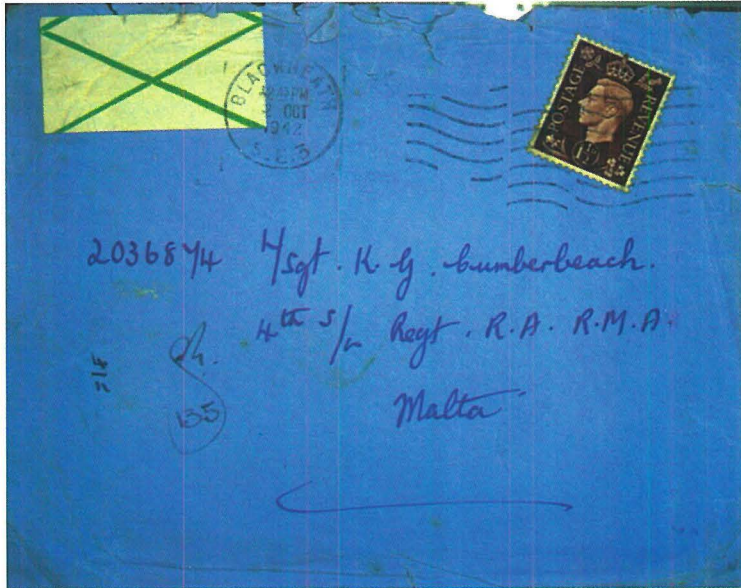 BLACKHEATH
OCT
1942
S.E.3
POSTAGE REVENUE
1½
2036874 L/Sgt. K. G. Cumberbeach.
4th S/L Regt. R.A. R.M.A.
Malta
135